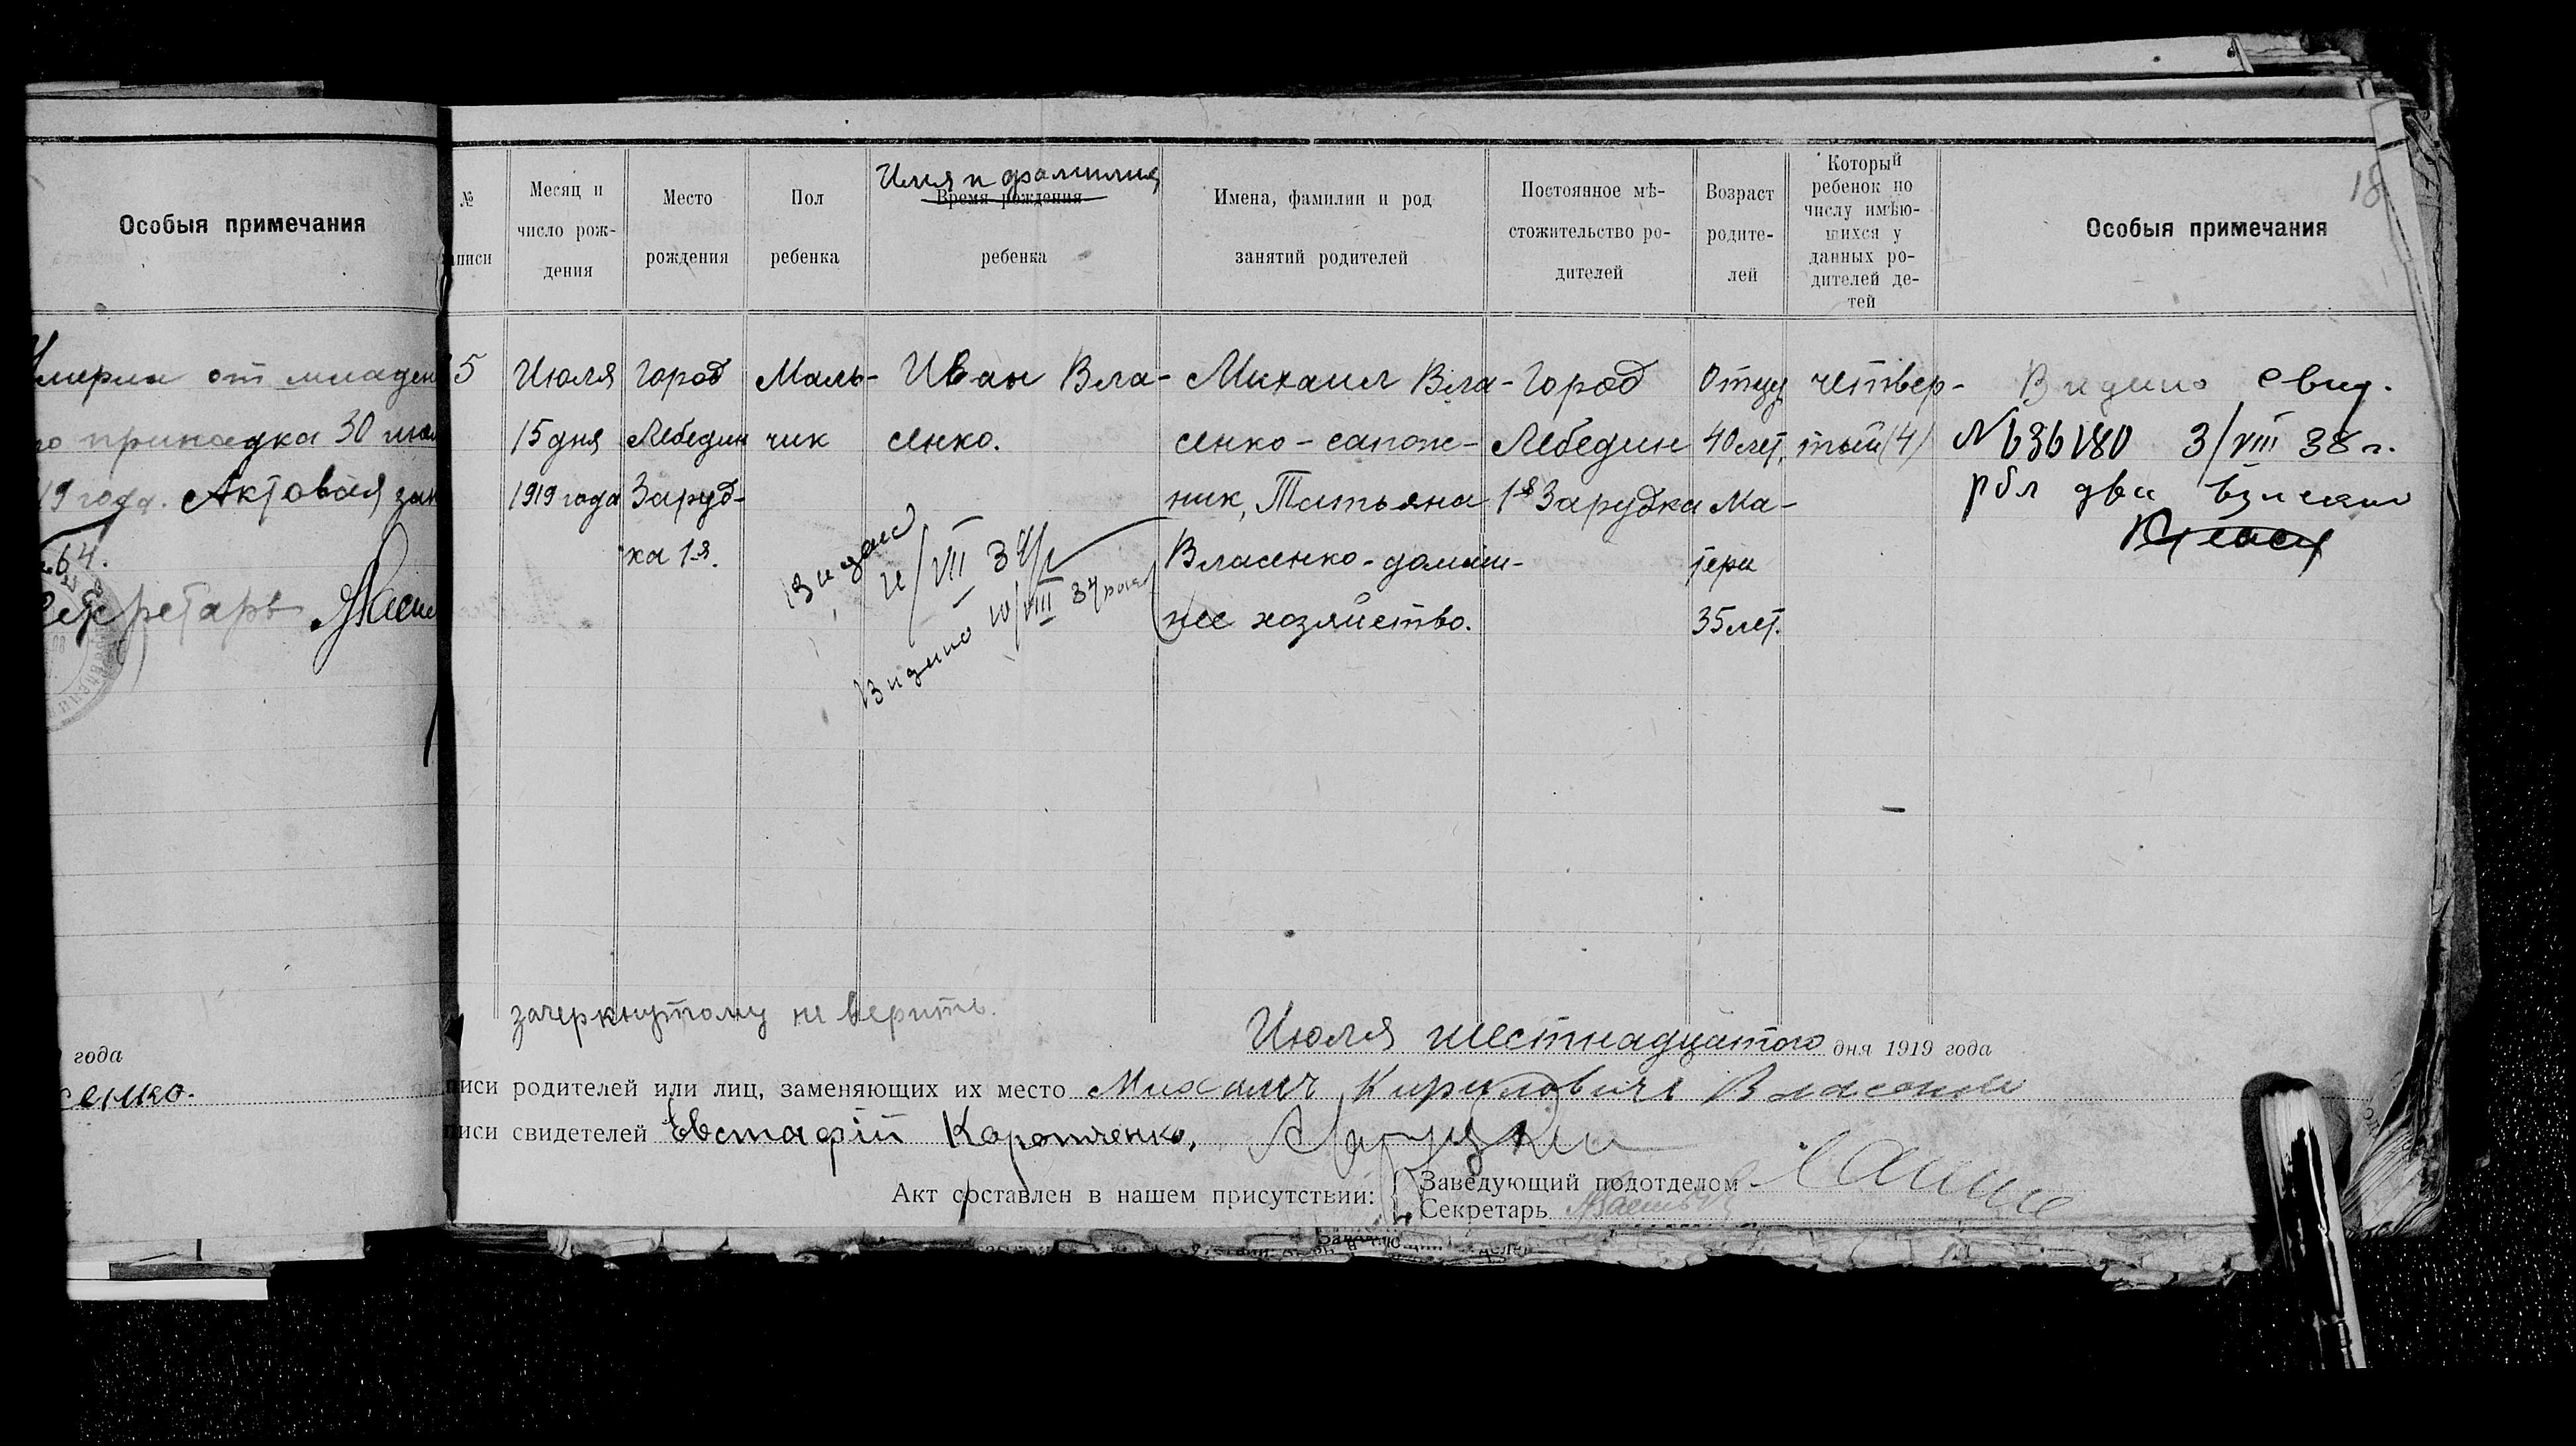 Особыя примечания
от младен
припадка 30
19 года. Актовая зап
64.
Секретарь
года
сенко.
18
№
аписи
Месяц и
число рож-
дения
Место
рождения
Пол
ребенка
Имя и фамилия
Время рождения
ребенка
Имена, фамилии и род
занятий родителей
Постоянное мѣ-
стожительство ро-
дителей
Возраст
родите-
лей
Который
ребенок по
числу имѣю-
шихся у
данных ро-
дителей де-
тей
Особыя примечания
5
Июля
15 дня
1919 года
Город
Лебедин
Заруд-
ка 1-я.
Маль-
чик
Иван Вла-
сенко.
Видано
VIII
Видано 10/VIII 37
Михаил Вла-
сенко - сапож-
ник, Татьяна
Власенко - домаш-
нее хозяйство.
Город
Лебедин
1-я Зарудка
Отцу
40 лет,
Ма-
тери
35 лет.
четвер-
тый (4)
Видано свид.
3/VIII 38 г.
рбл два взыскано
зачеркнутому не верить.
Июля шестнадцатого дня 1919 года
писи родителей или лиц, заменяющих их место Михаилъ Кириловичъ Власенко
писи свидетелей Евстафій Коротченко,
Акт составлен в нашем присутствии:
Заведующий подотделом
Секретарь